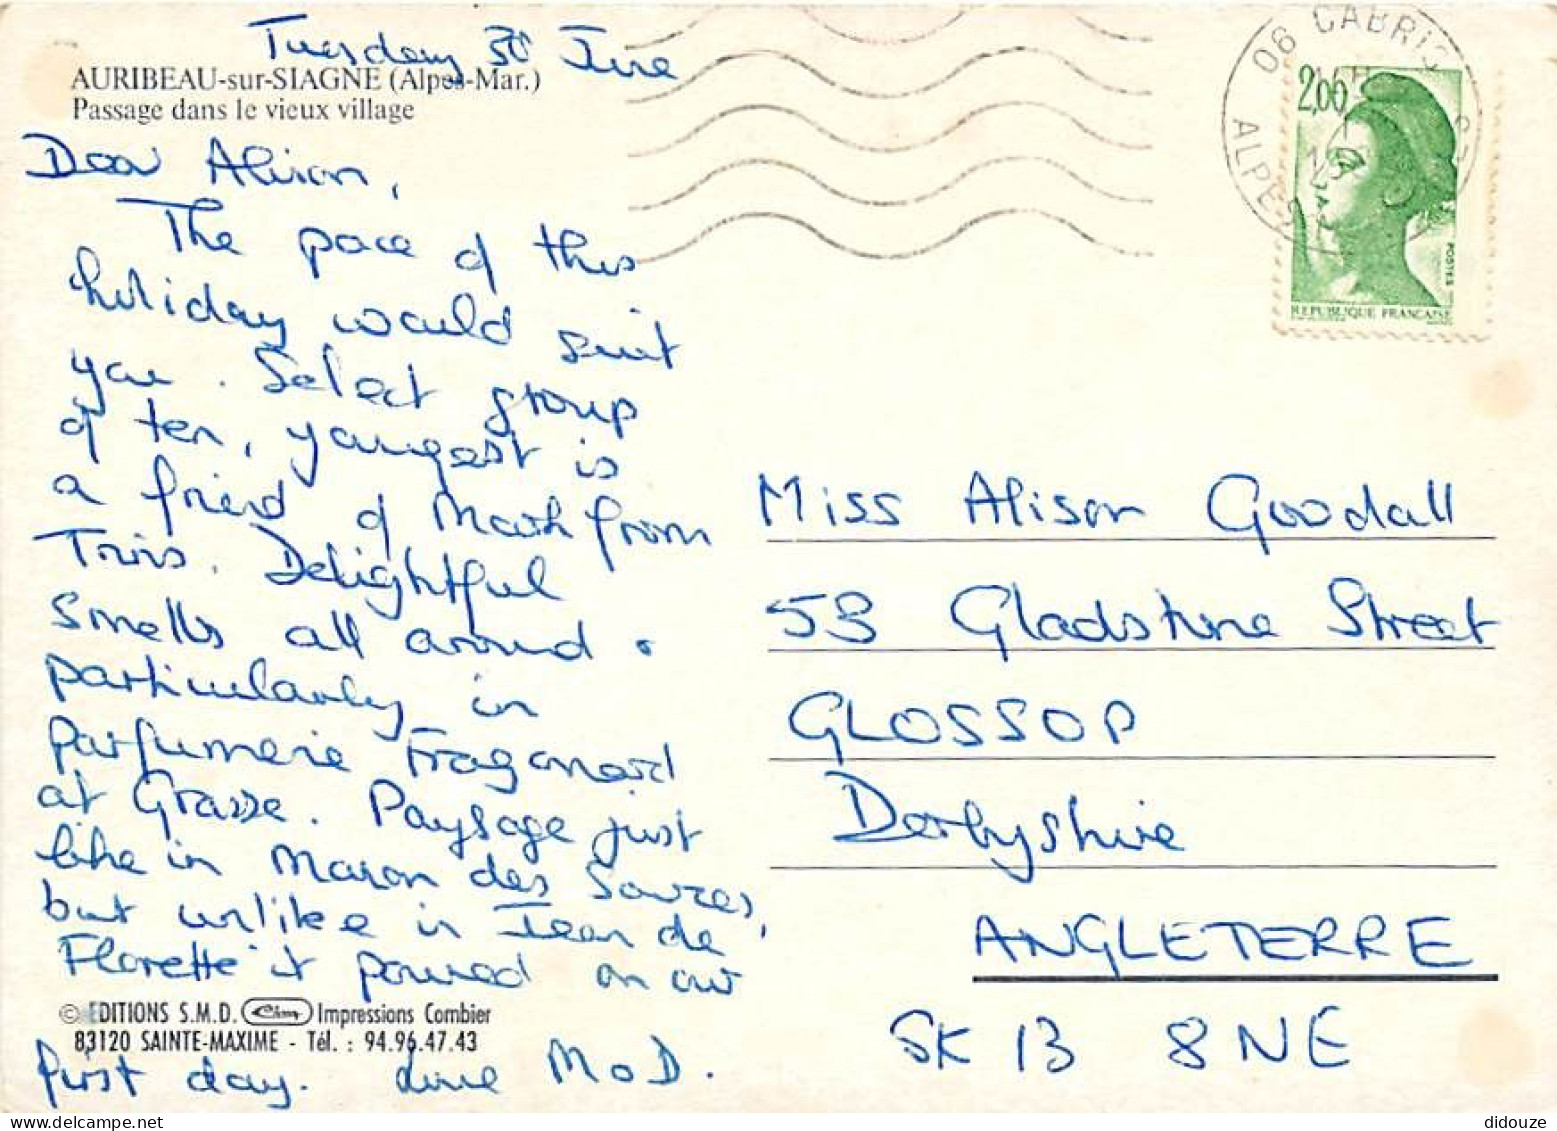 Tuesday 30 June
AURIBEAU-sur-SIAGNE (Alpes-Mar.)
Passage dans le vieux village
Dear Alison,
The pace of this
holiday would suit
you. Select group
of ten, youngest is
a friend of Mark from
Trris. Delightful
smells all around.
particularly in
Parfumerie Fragonard
at Grasse. Paysage just
like in Manon des Sources,
but unlike in Jean de
Florette it poured on our
© EDITIONS S.M.D. Cim Impressions Combier
83120 SAINTE-MAXIME - Tél. : 94.96.47.43
first day. Love M o D.
06 CABRIS
ALPES
2,00
POSTES
REPUBLIQUE FRANÇAISE
Miss Alison Goodall
53 Gladstone Street
GLOSSOP
Derbyshire
ANGLETERRE
SK 13 8NE
didouze